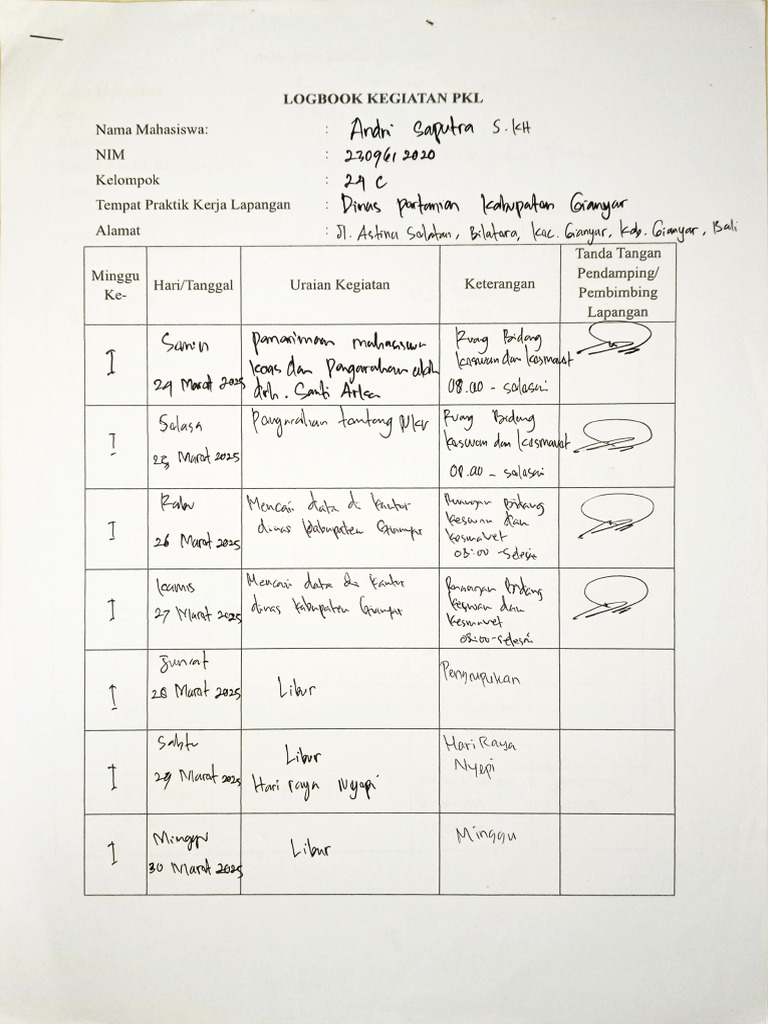 LOGBOOK KEGIATAN PKL
Nama Mahasiswa: : Andri Saputra S.KH
NIM : 2309612020
Kelompok : 24 C
Tempat Praktik Kerja Lapangan : Dinas pertanian Kabupaten Gianyar
Alamat : Jl. Astina Selatan, Bitera, Kec. Gianyar, Kab. Gianyar, Bali
Minggu Ke-
Hari/Tanggal
Uraian Kegiatan
Keterangan
Tanda Tangan
Pendamping/
Pembimbing
Lapangan
I
Senin
24 Maret 2025
penerimaan mahasiswa
koas dan pengarahan oleh
drh. Santi Arka
Ruang Bidang
keswan dan kesmavet
08.00 - selesai
I
Selasa
25 Maret 2025
Pengarahan tentang NKV
Ruang Bidang
keswan dan kesmavet
08.00 - selesai
I
Rabu
26 Maret 2025
Mencari data di kantor
dinas Kabupaten Gianyar
Ruangan Bidang
keswan dan
kesmavet
08:00 - selesai
I
kamis
27 Maret 2025
Mencari data di kantor
dinas kabupaten Gianyar
Ruangan Bidang
keswan dan
kesmavet
08:00 - selesai
I
Jum'at
28 Maret 2025
Libur
Pengrupukan
I
Sabtu
29 Maret 2025
Libur
Hari raya Nyepi
Hari Raya
Nyepi
I
Minggu
30 Maret 2025
Libur
Minggu